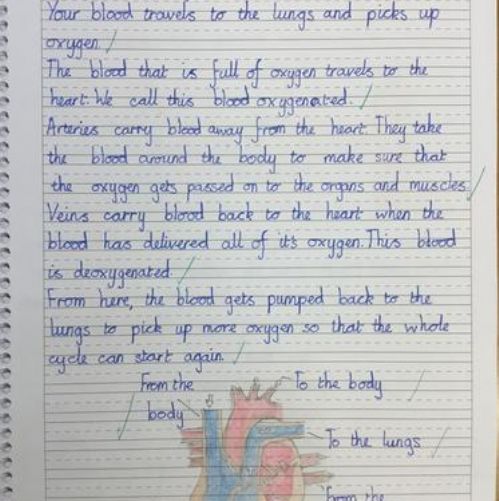 Your blood travels to the lungs and picks up
oxygen.
The blood that is full of oxygen travels to the
heart. We call this blood oxygenated.
Arteries carry blood away from the heart. They take
the blood around the body to make sure that
the oxygen gets passed on to the organs and muscles.
Veins carry blood back to the heart when the
blood has delivered all of it's oxygen. This blood
is deoxygenated.
From here, the blood gets pumped back to the
lungs to pick up more oxygen so that the whole
cycle can start again.
From the
body
To the body
To the lungs
From the